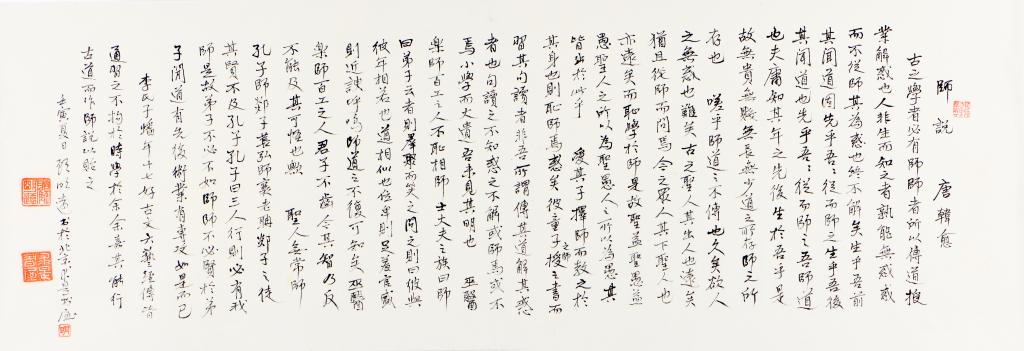 師說　唐 韓愈
古之學者必有師師者所以傳道授
業解惑也人非生而知之者孰能無惑惑
而不從師其為惑也終不解矣生乎吾前
其聞道固先乎吾吾從而師之生乎吾後
其聞道也先乎吾吾從而師之吾師道
也夫庸知其年之先後生於吾乎是
故無貴無賤無長無少道之所存師之所
存也　嗟乎師道之不傳也久矣欲人
之無惑也難矣古之聖人其出人也遠矣
猶且從師而問焉今之眾人其下聖人也
亦遠矣而恥學於師是故聖益聖愚益
愚聖人之所以為聖愚人之所以為愚其
皆出於此乎　愛其子擇師而教之於
其身也則恥師焉惑矣彼童子之師授之書而
習其句讀者非吾所謂傳其道解其惑
者也句讀之不知惑之不解或師焉或不
焉小學而大遺吾未見其明也　巫醫
樂師百工之人不恥相師士大夫之族曰師
曰弟子云者則群聚而笑之問之則曰彼與
彼年相若也道相似也位卑則足羞官盛
則近諛嗚呼師道之不復可知矣巫醫
樂師百工之人君子不齒今其智乃反
不能及其可怪也歟　聖人無常師
孔子師郯子萇弘師襄老聃郯子之徒
其賢不及孔子孔子曰三人行則必有我
師是故弟子不必不如師師不必賢於弟
子聞道有先後術業有專攻如是而已
李氏子蟠年十七好古文六藝經傳皆
通習之不拘於時學於余余嘉其能行
古道而作師說以貽之